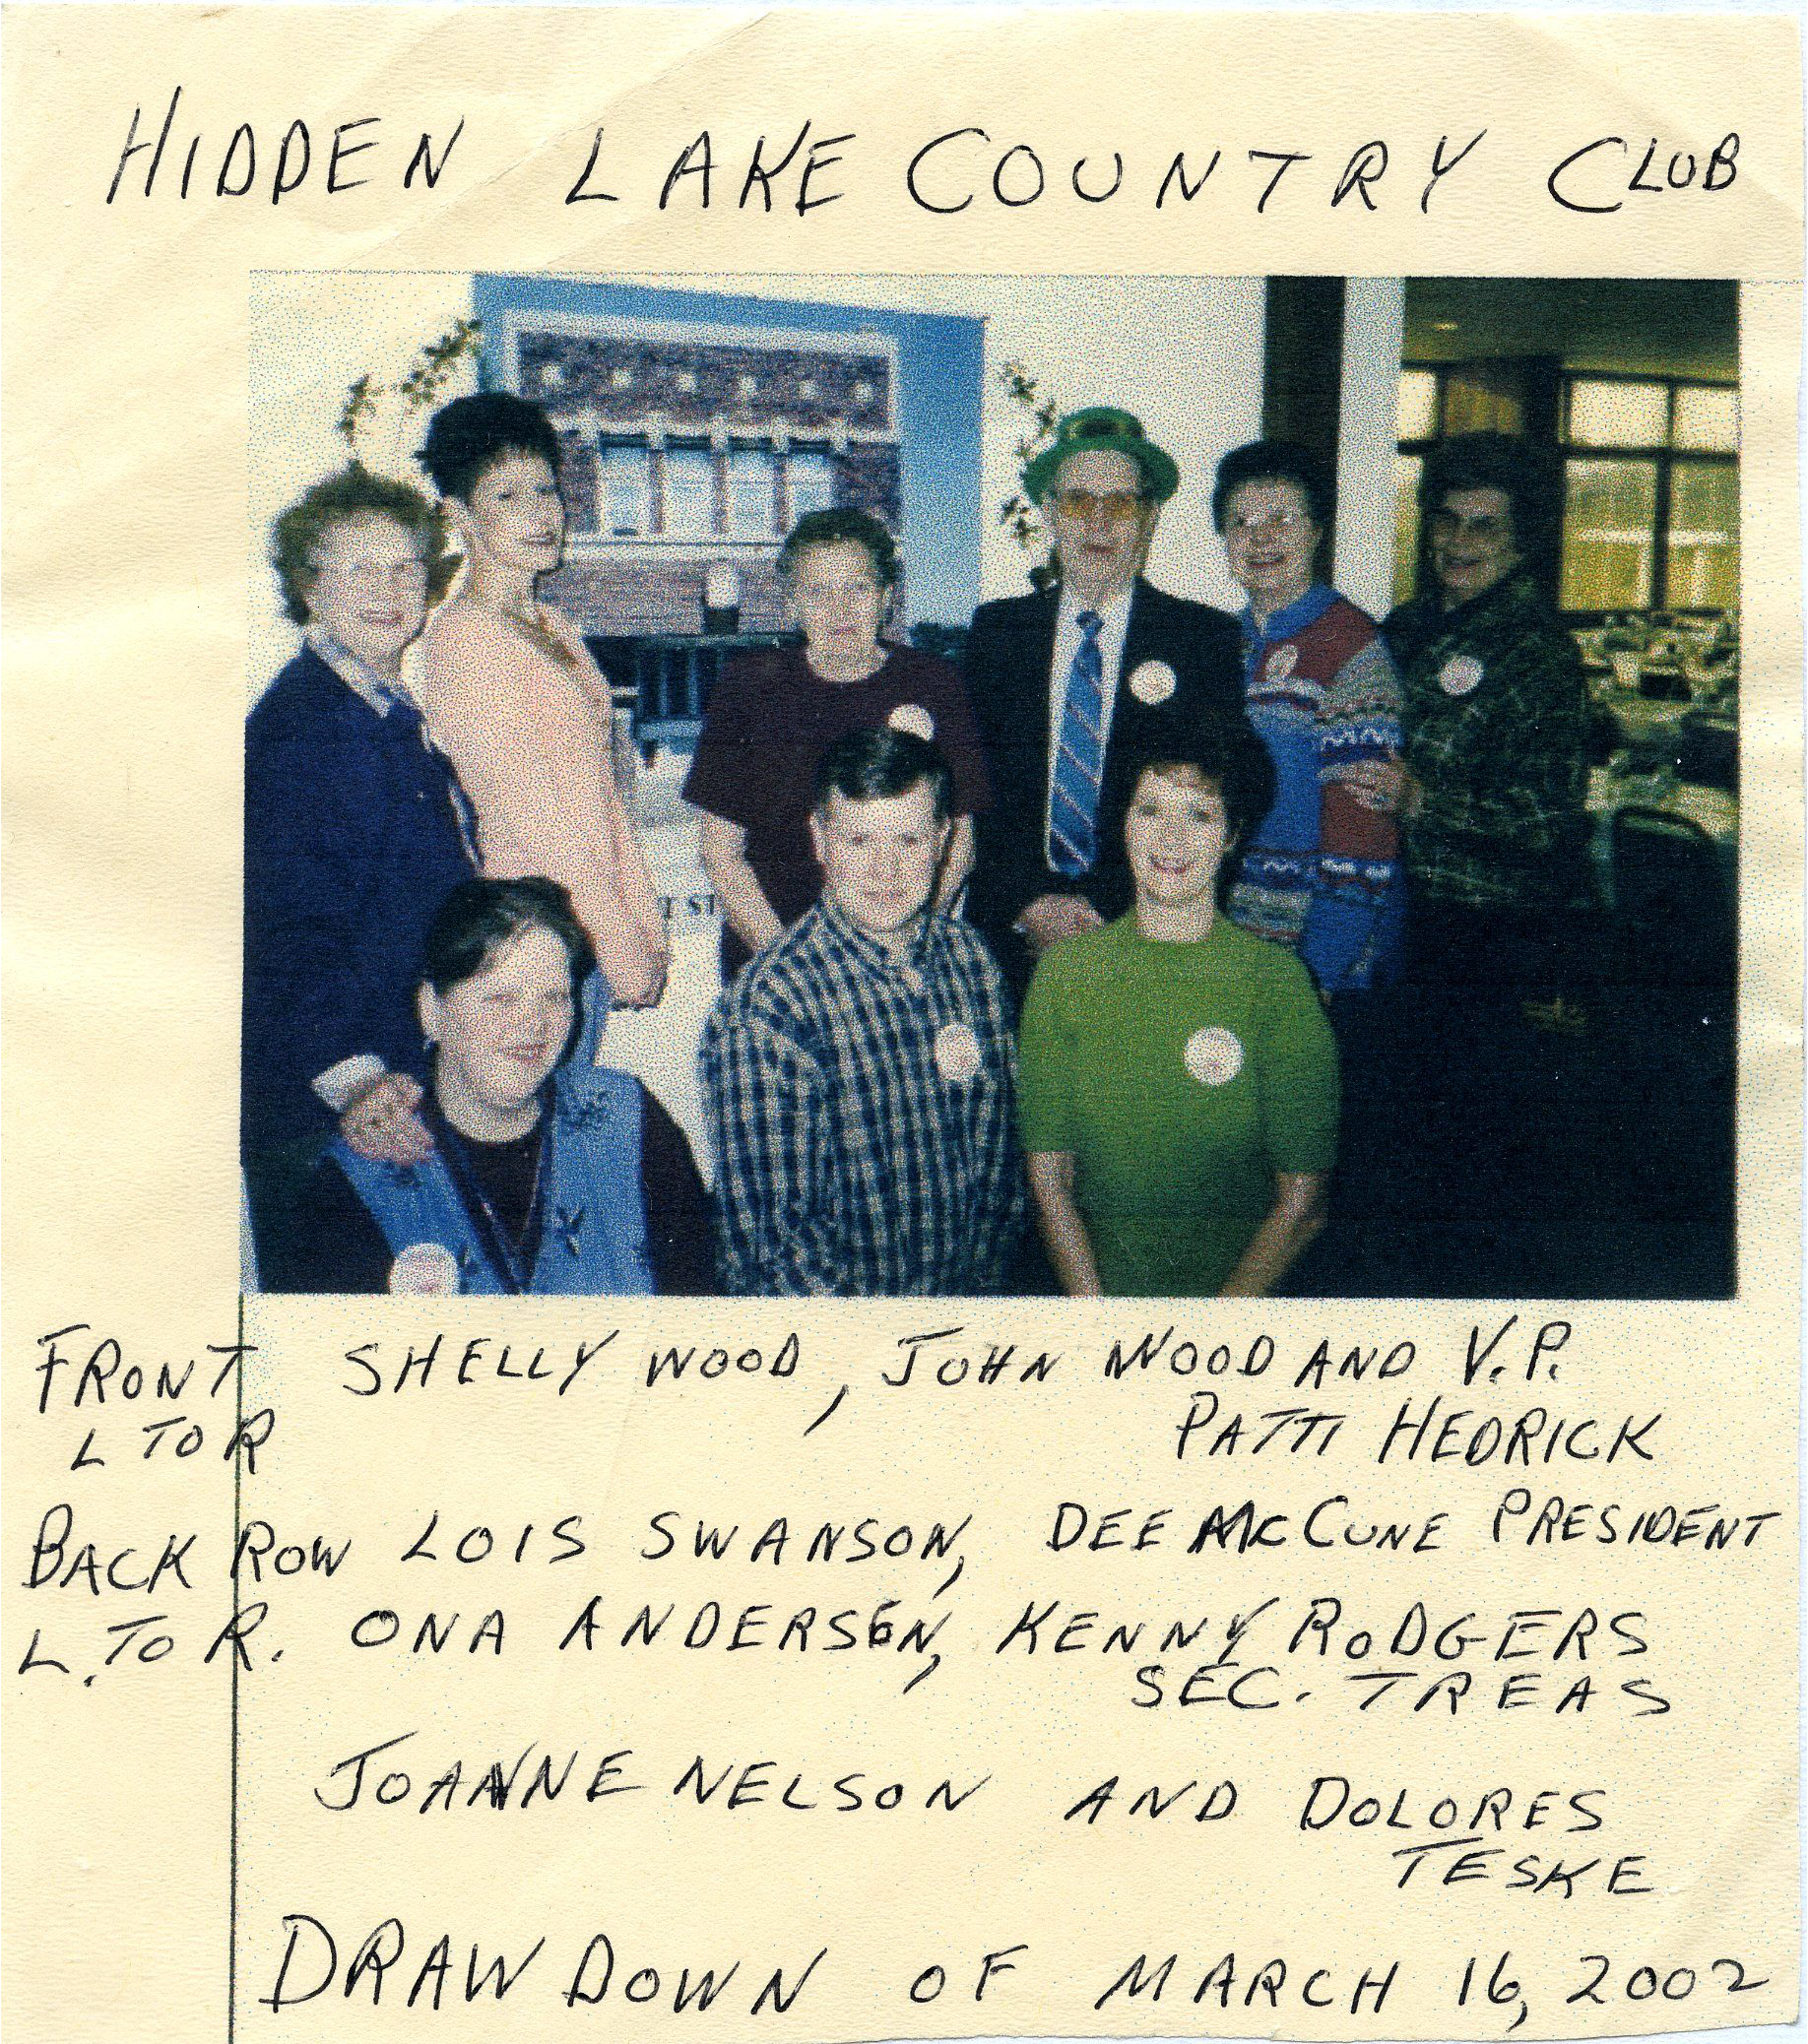 HIDDEN LAKE COUNTRY CLUB
1 ST
FRONT SHELLY WOOD, JOHN WOOD AND V.P.
L TO R PATTI HEDRICK
BACK ROW LOIS SWANSON, DEE McCUNE PRESIDENT
L. TO R. ONA ANDERSEN, KENNY RODGERS
SEC. TREAS
JOANNE NELSON AND DOLORES
TESKE
DRAW DOWN OF MARCH 16, 2002